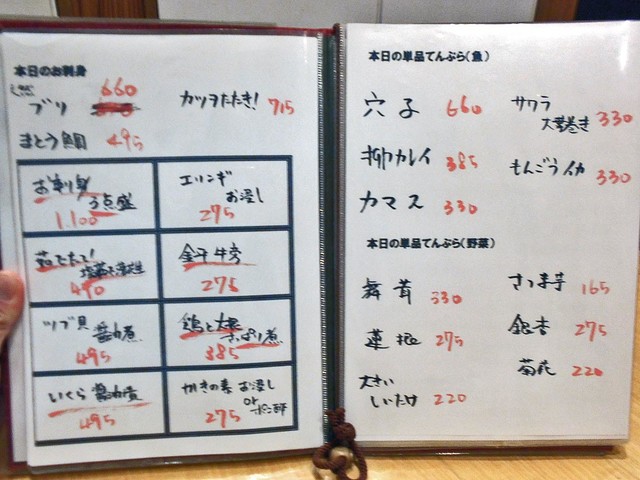 本日のお刺身
ブリ 660
カツオたたき! 715
まとう鯛 495
お刺身
3点盛
1.100
エリンギ
お浸し
275
茹でたて!
塩茹で落花生
440
金平牛蒡
275
ツブ貝
醤油煮
495
鶏と大根
さっぱり煮
385
いくら醤油漬
495
かきの素 お浸し
or ポン酢
275
本日の単品てんぷら(魚)
穴子 660
サワラ
大葉巻き 330
柳カレイ 385
もんごうイカ 330
カマス 330
本日の単品てんぷら(野菜)
舞茸 330
さつま芋 165
蓮根 275
銀杏 275
大きい
しいたけ 220
菊花 220